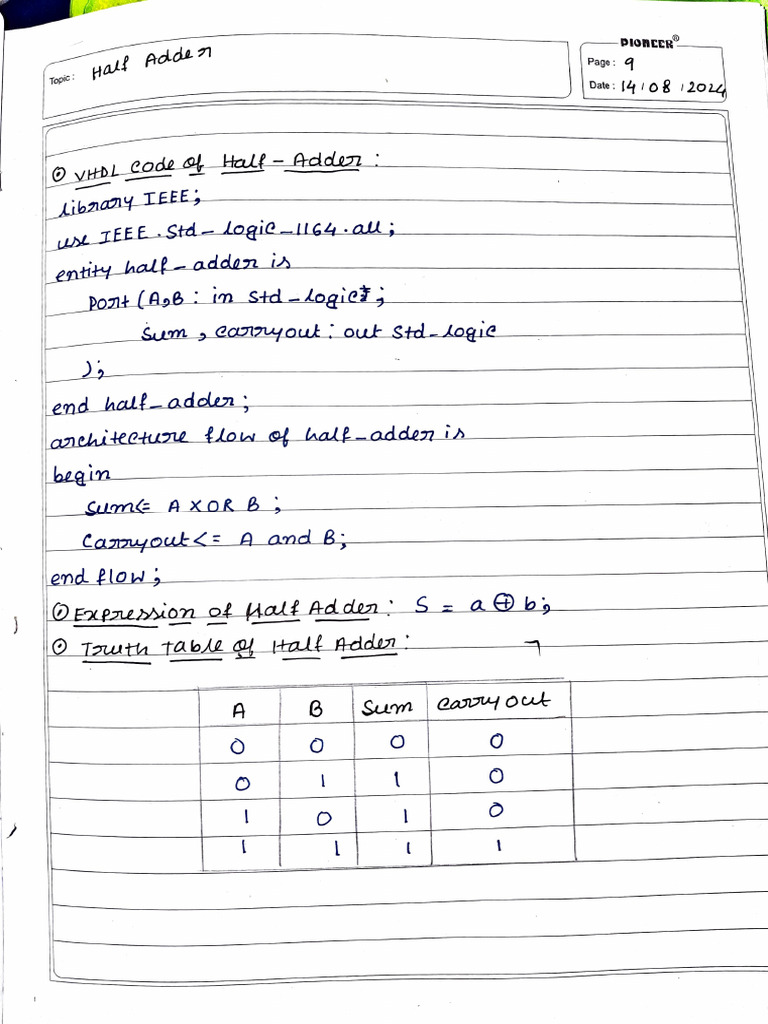 PIONEER®
Topic: Half Adder
Page: 9
Date: 14/08/2024
⊙ VHDL Code of Half-Adder:
library IEEE;
use IEEE.Std-logic-1164.all;
entity half-adder is
port (A,B: in std-logic;
Sum, carryout: out std-logic
);
end half-adder;
architecture flow of half-adder is
begin
Sum<= A XOR B;
Carryout<= A and B;
end flow;
⊙ Expression of Half Adder: S = a ⊕ b;
⊙ Truth Table of Half Adder: ¬
A B Sum carryout
0 0 0 0
0 1 1 0
1 0 1 0
1 1 1 1